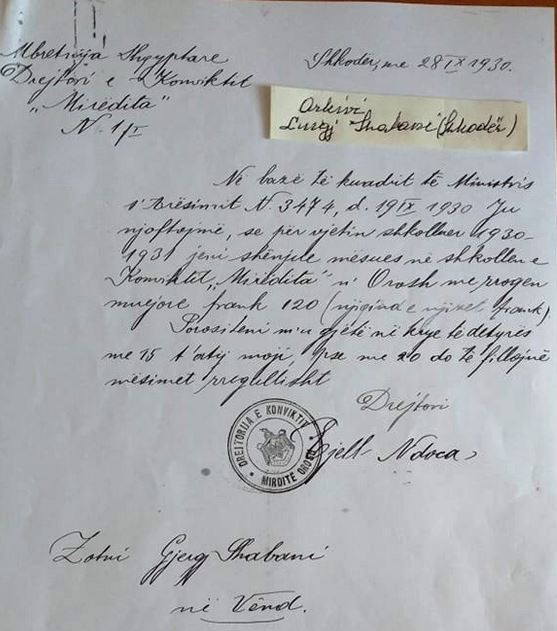 Mbretnija Shqyptare
Drejtori e Konviktit
„Miredita"
N. 1/I
Shkodër, me 28 IX 1930.
Arkivi
Luigj Shabani (Shkodër)
Në bazë të kuadit të Ministris
s'Arësimit N. 3474, d. 19 IX 1930 Ju
njoftojmë, se për vjetin shkolluer 1930-
1931 jeni shênjue mësues në shkollen e
Konviktit „Miredita" n' Orosh me rrogen
mujore frank 120 (njiqind e njizet frank)
Porositeni m'u gjetë në krye të detyrës
me 15 t'atij moji, pse me 20 do të fillojnë
mësimet rregullisht
Drejtori
Gjell Ndoca
DREJTORIJA E KONVIKTIT
MIRDITË OROSH
Zotni Gjergj Shabani
në Vênd.